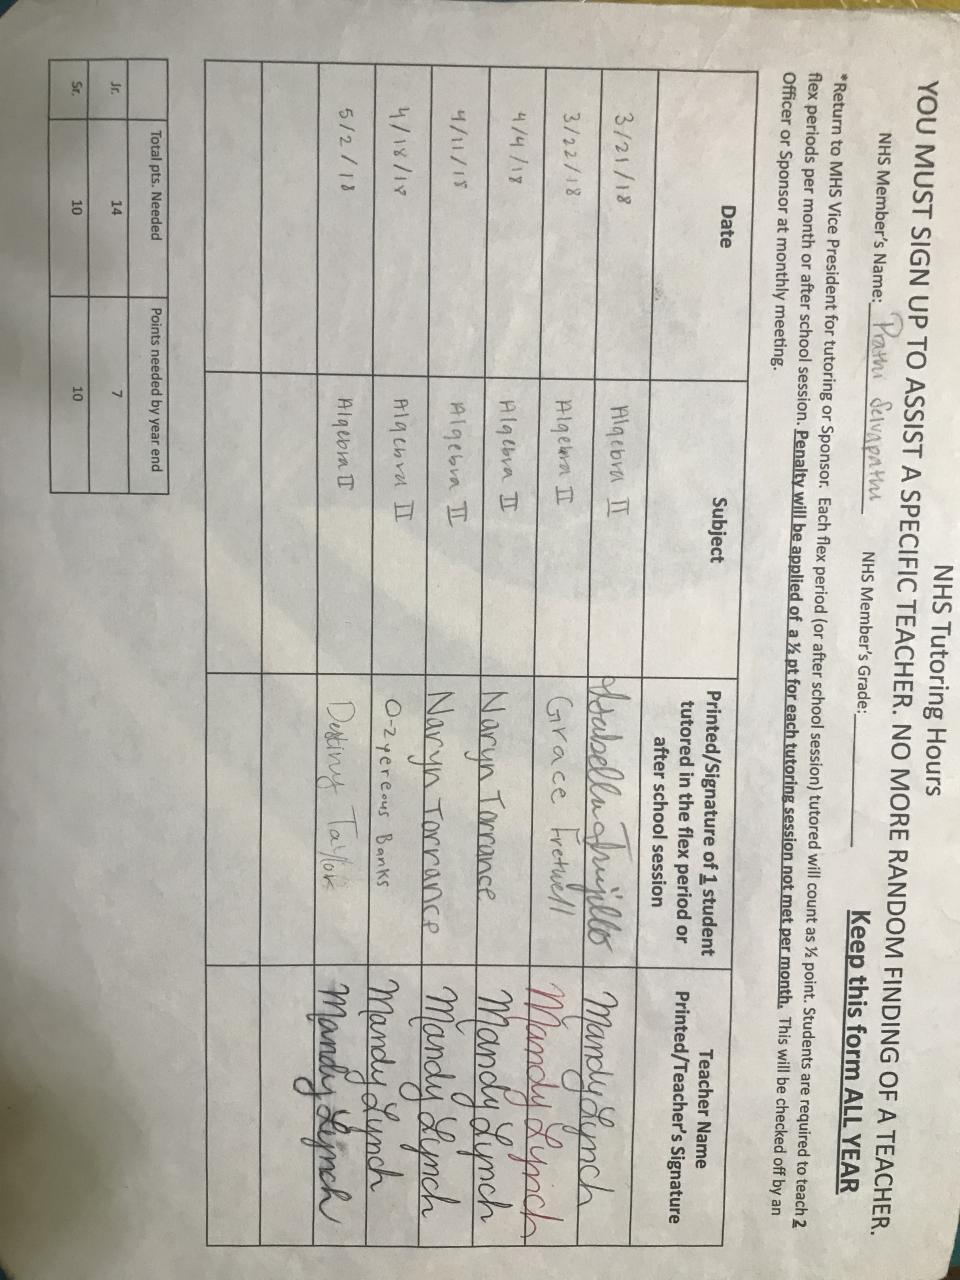 NHS Tutoring Hours
YOU MUST SIGN UP TO ASSIST A SPECIFIC TEACHER. NO MORE RANDOM FINDING OF A TEACHER.
NHS Member's Name: Prathi Selvapathi NHS Member's Grade: Keep this form ALL YEAR
*Return to MHS Vice President for tutoring or Sponsor. Each flex period (or after school session) tutored will count as ½ point. Students are required to teach 2
flex periods per month or after school session. Penalty will be applied of a ½ pt for each tutoring session not met per month. This will be checked off by an
Officer or Sponsor at monthly meeting.
Date Subject Printed/Signature of 1 student tutored in the flex period or after school session Teacher Name Printed/Teacher's Signature
3/21/18 Algebra II Isabella Trujillo Mandy Lynch
3/22/18 Algebra II Grace Fretwell Mandy Lynch
4/4/18 Algebra II Naryn Torrance Mandy Lynch
4/11/18 Algebra II Naryn Torrance Mandy Lynch
4/18/18 Algebra II O-zyereous Banks Mandy Lynch
5/2/18 Algebra II Destiny Taylor Mandy Lynch
Total pts. Needed Points needed by year end
Jr. 14 7
Sr. 10 10